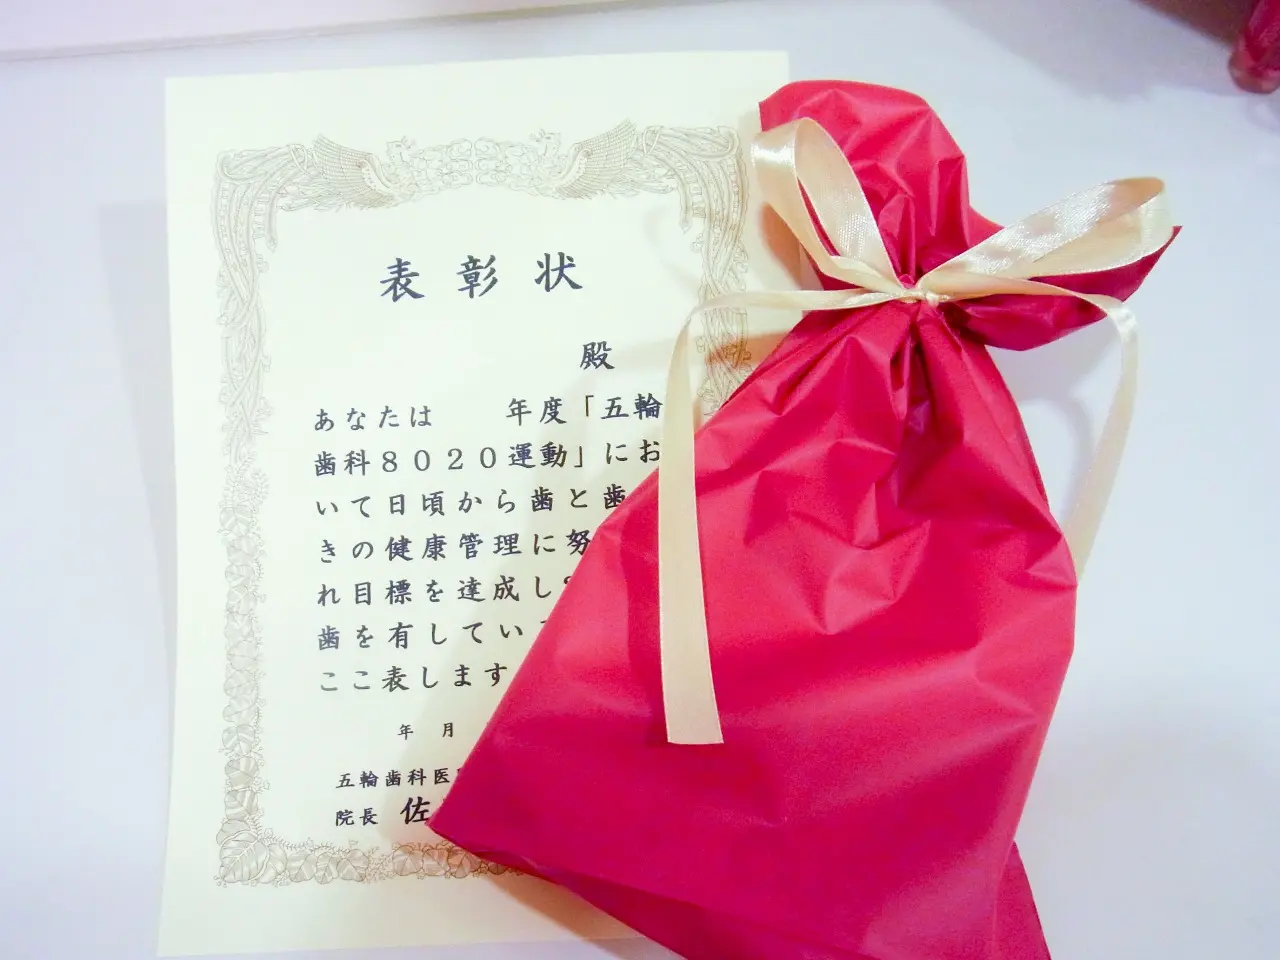 表彰状
殿
あなたは 年度「五輪
歯科8020運動」にお
いて日頃から歯と歯
きの健康管理に努
れ目標を達成し
歯を有してい
ここ表します
年 月
五輪歯科医
院長 佐